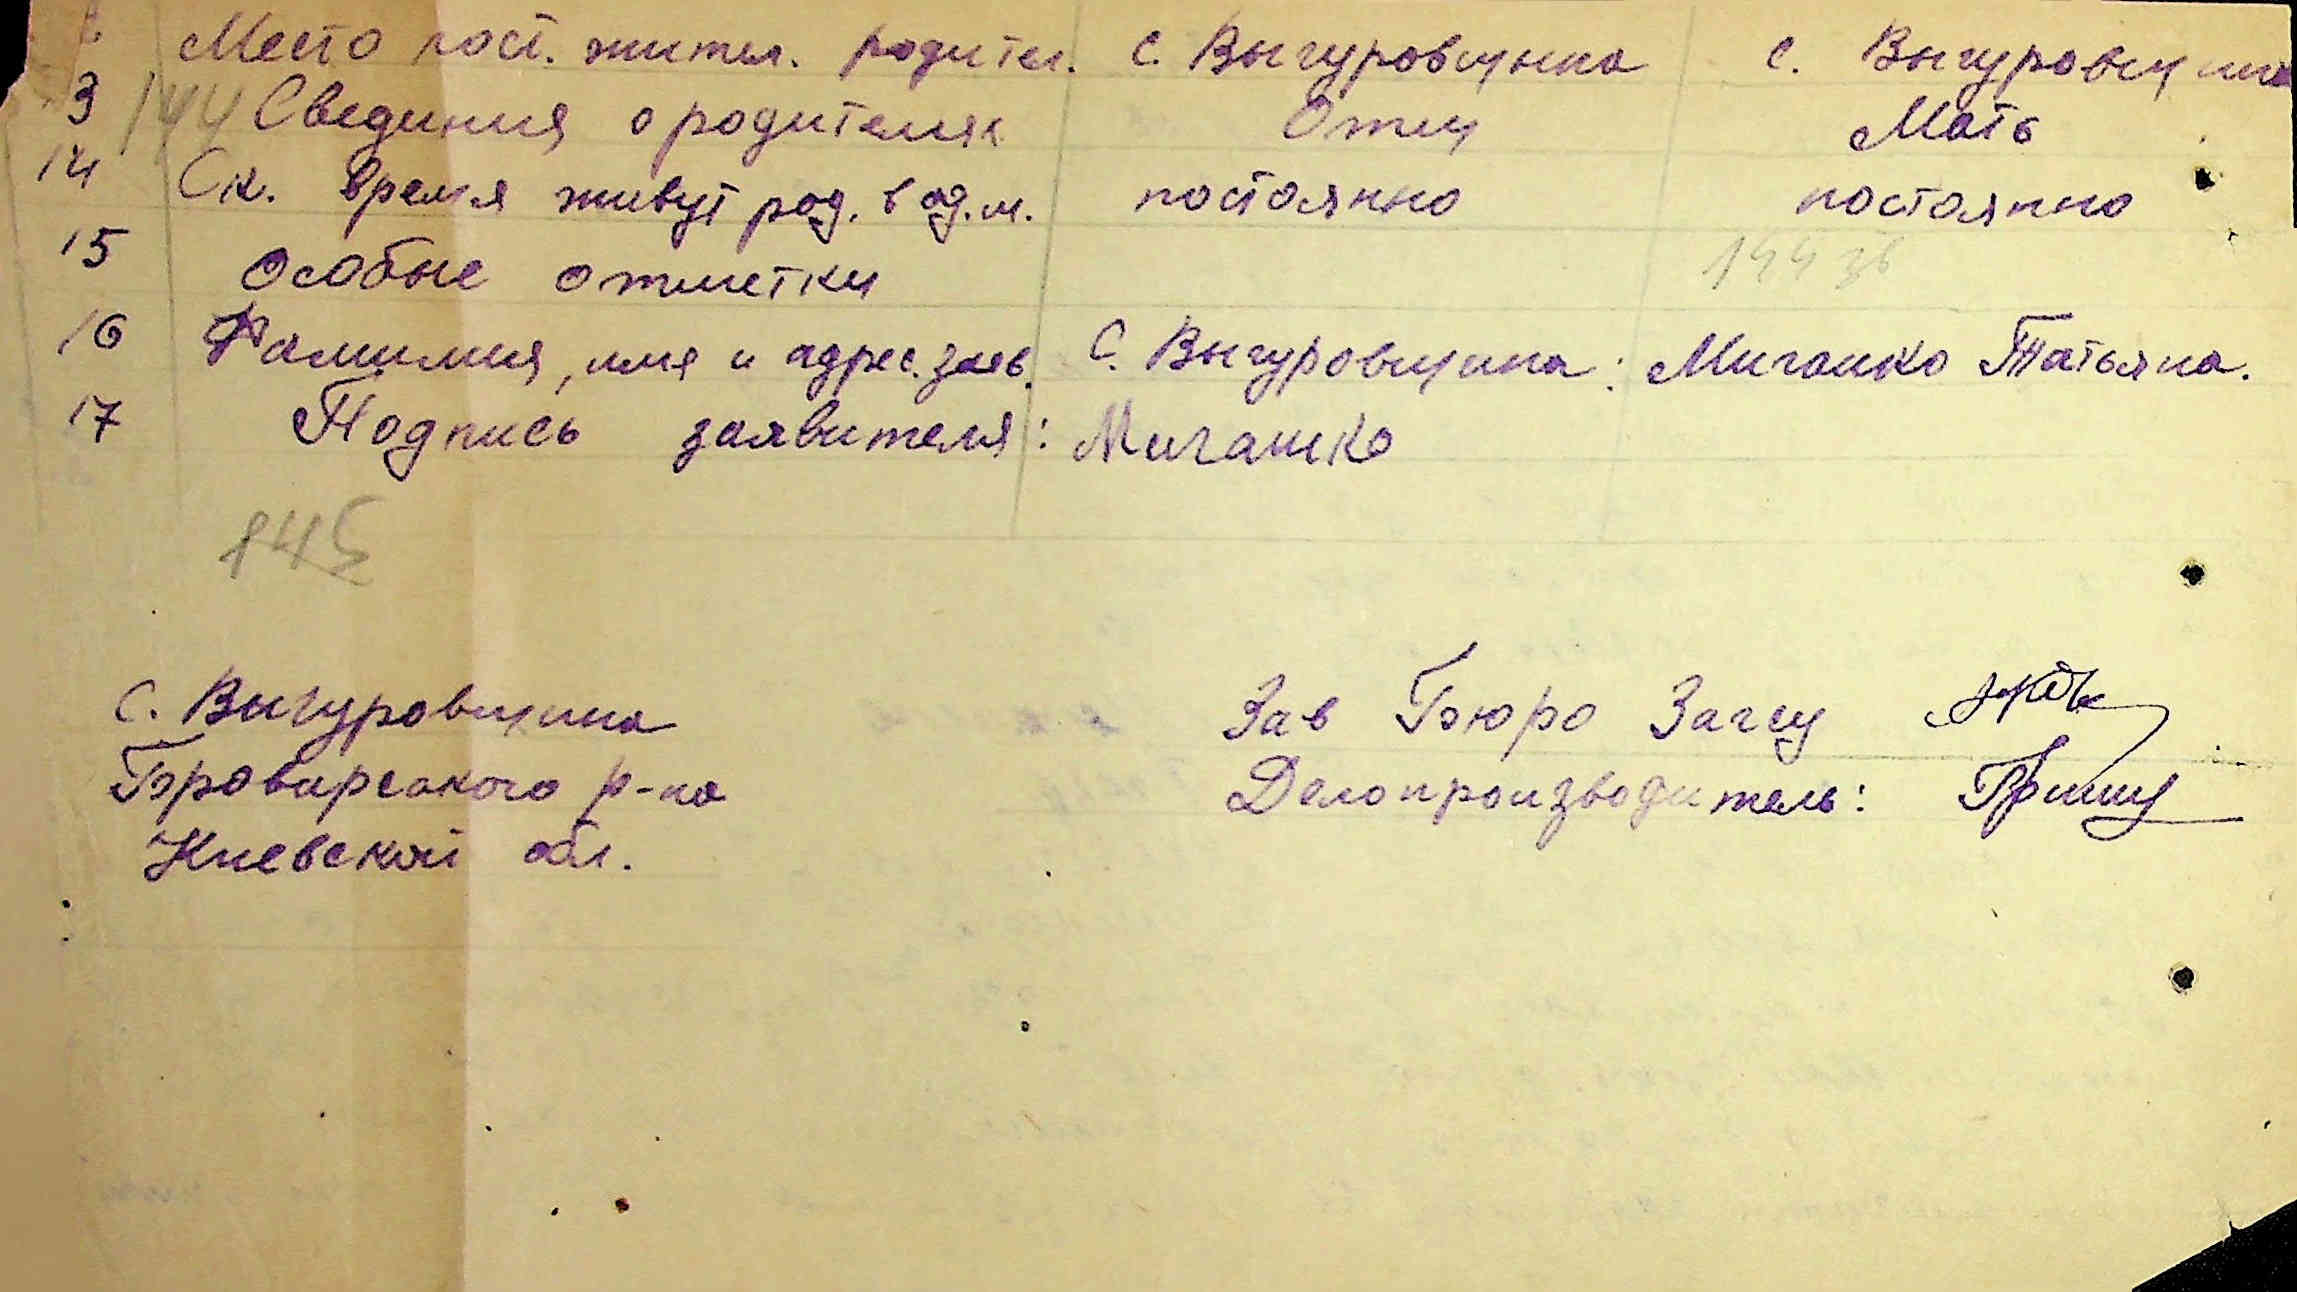 Место пост. жител. родител. с. Выгуровщина с. Выгуровщина
3 144 Свединия о родителях Отец Мать
14 Ск. время живут род. в од. м. постоянно постоянно
15 Особые отметки 144 зв
16 Фамилия, имя и адрес. заяв. С. Выгуровщина: Миганко Татьяна.
17 Подпись заявителя: Миганко
145
С. Выгуровщина Зав Бюро Загсу
Броварского р-на Делопроизводитель:
Киевской обл.